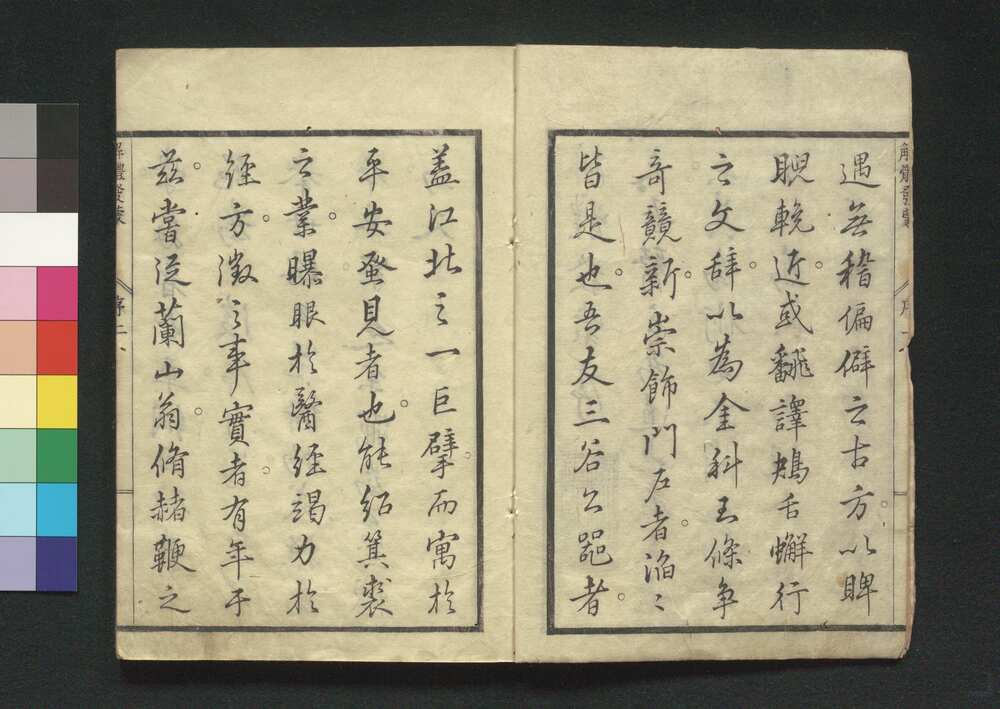 遇無稽偏僻之古方以睥
睨輓近或飜譯鴂舌蠏行
之文辭以為金科玉條争
奇競新崇飾門戸者滔〻
皆是也吾友三谷公噐者
蓋江北之一巨擘而寓於
平安發見者也能紹箕裘
之業曝眼於醫経竭力於
経方徴之事實者有年于
兹嘗従蘭山翁脩赭鞭之
解體發蒙
序二